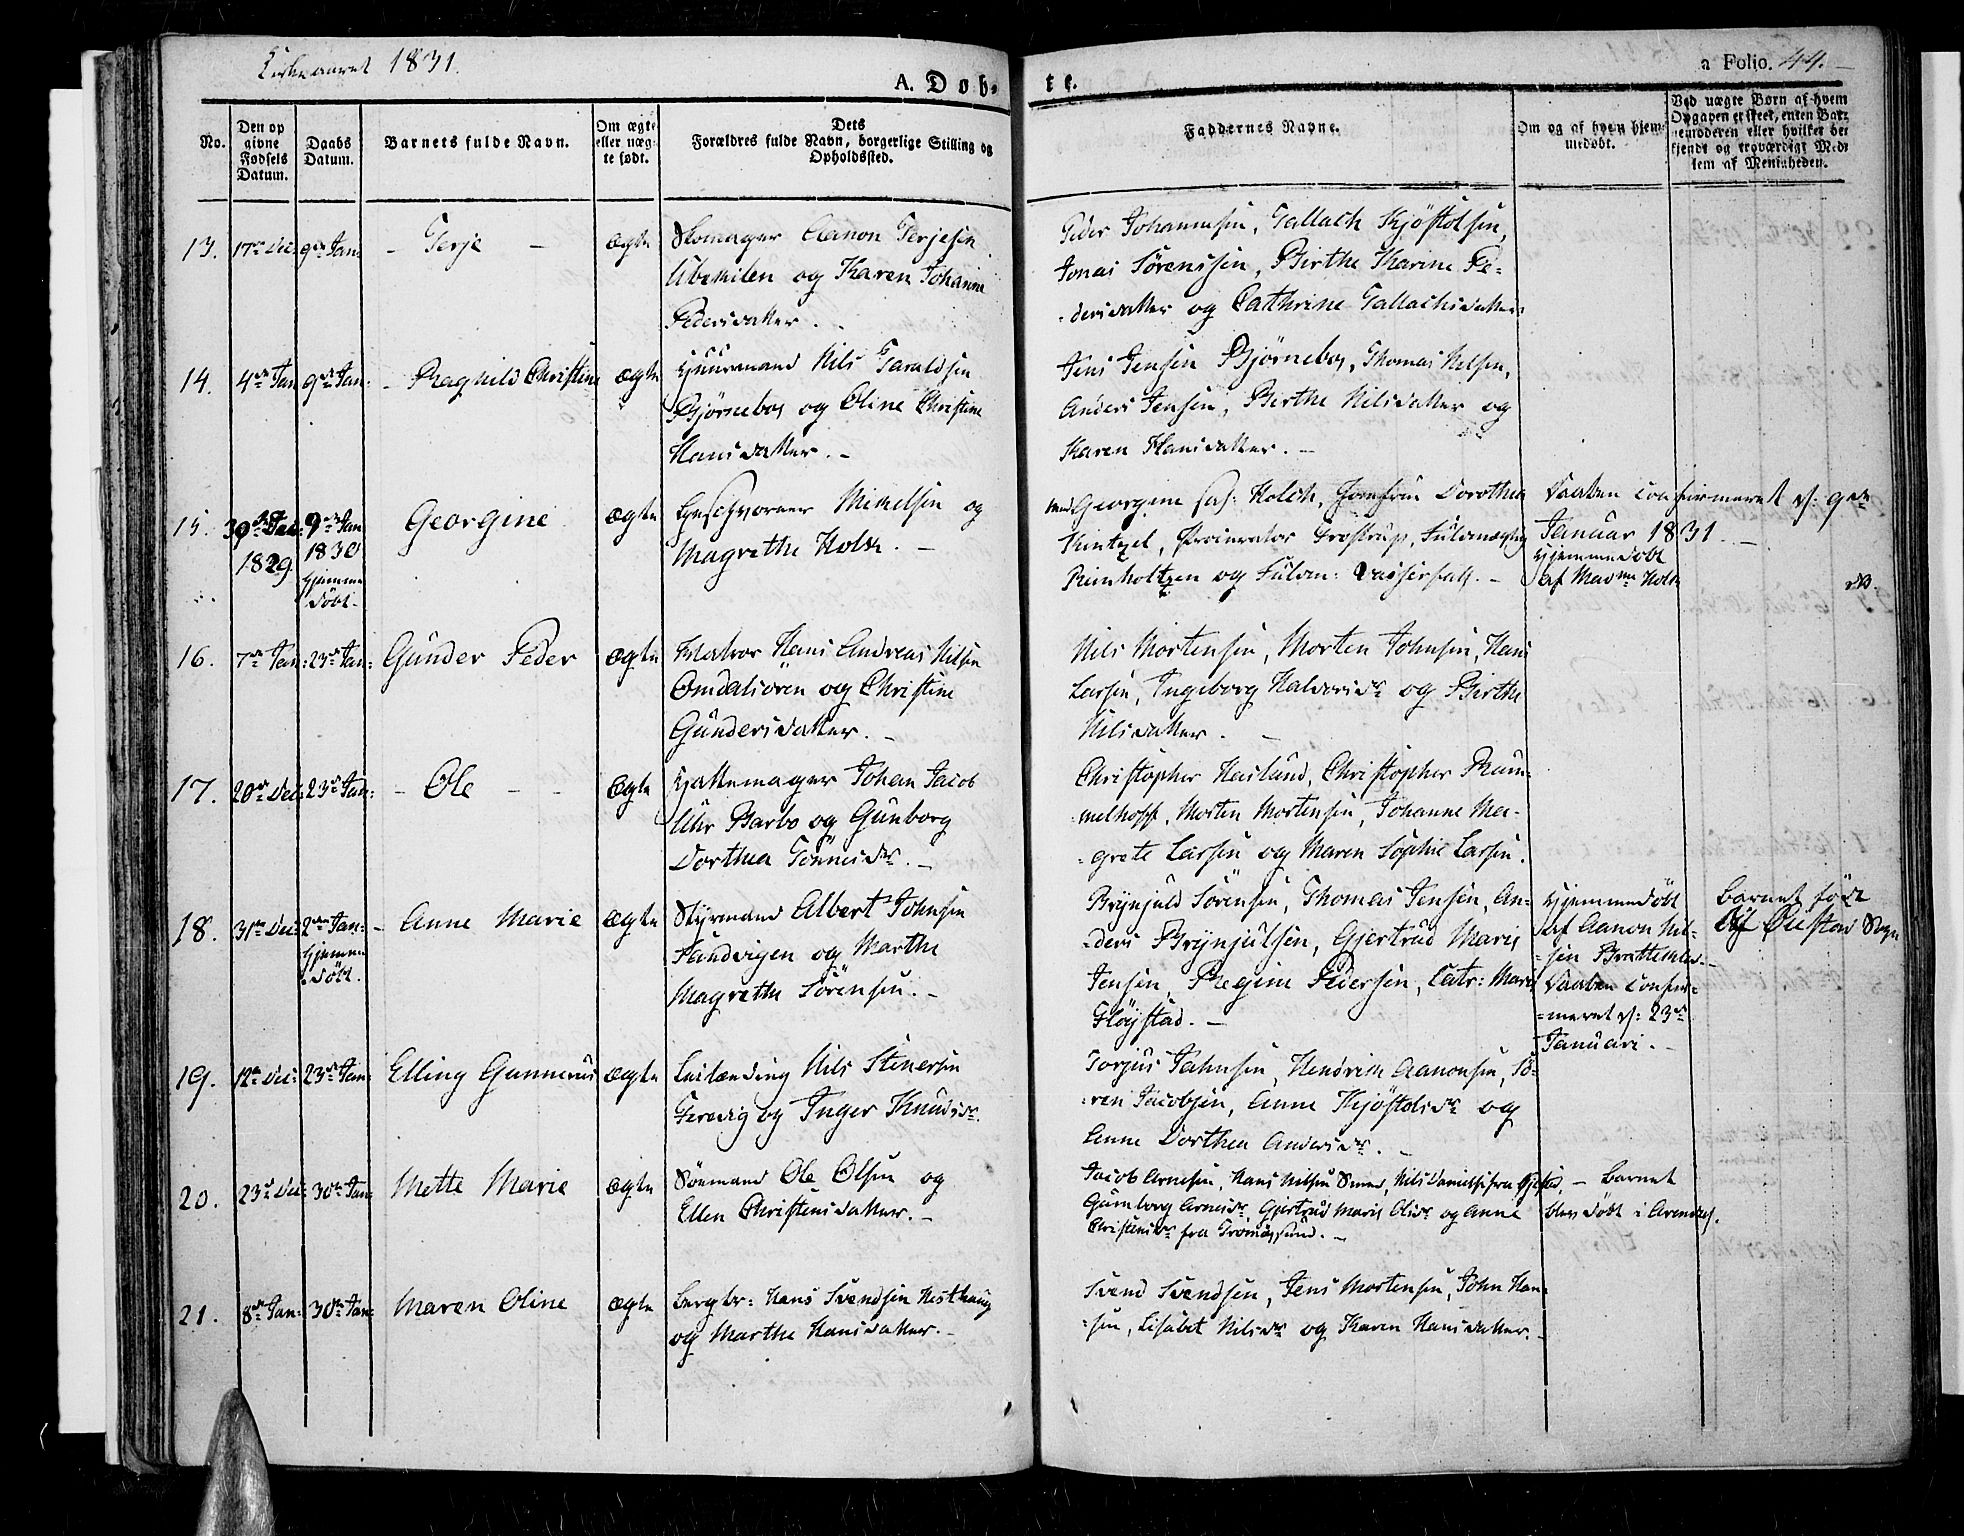 Kirkeaaret 1831.
A. Döb-
te.
a Folio. 44.
No.
Den opgivne Födsels Datum.
Daabs Datum.
Barnets fulde Navn.
Om ægte eller uægte födt.
Dets Forældres fulde Navn, borgerlige Stilling og Opholdssted.
Faddernes Navne.
Om og af hvem hjemmedöbt.
Ved uægte Børn af hvem Opgaven er skeet, enten Barnemoderen eller hvilket bekjendt og troværdigt Medlem af Menigheden.
13. 17de Dec: 9de Jan: - Terje - Ægte
Skomager Aanon Terjesen
Ubekilen og Karen Johanne
Pedersdatter.
Peder Johannesen, Tallack Kjöstolsen,
Jonas Sörenssen, Birthe Karine Pe-
-dersdatter og Cathrine Tallachsdatter
14. 4de Jan 9de Jan: - Ragnild Christine Ægte
Huusmand Nils Taraldsen
Björnebos og Oline Christine
Hansdatter. -
Jens Jensen Björnebos, Thomas Nilsen,
Anders Jensen, Birthe Nilsdatter og
Karen Hansdatter. -
15. 30te Dec: 1829. 9de Jan 1830 hjemme döbt. Georgine Ægte
Michelsen og
Magrethe Holck. -
Georgine Holck, Jomfru Dorothea
Kintzel, Procurator Trostrup, Fuldmægtig
Reinholtzen og Fuldm: -
Daaben confirmeret d: 9de
Januar 1831. -
Hjemmedöbt
af Mad Holck
16. 7de Jan: 23de Jan: Gunder Peder Ægte
Matros Hans Andreas Nilsen
Omdalsören og Christine
Gundersdatter. -
Nils Mortensen, Morten Johnsen, Hans
Larsen, Ingeborg Halvorsdr og Birthe
Nilsdatter. -
17. 20de Dec: 23de Jan: - Ole - - Ægte
Hattemager Johan Jacob
Uhr Barbo og Gunborg
Dorthea Tönnesdr. -
Christopher Haslund, Christopher Rum-
-melhoff, Morten Mortensen, Johanne Mar-
-grete Larsen og Maren Sophie Larsen.
18. 31te Dec: 2den Jan: hjemme döbt. - Anne Marie Ægte
Styrmand Albert Johnsen
Sandvigen og Marthe
Magrethe Sörensen. -
Brynjuld Sörensen, Thomas Jensen, An-
-ders Brynjulsen, Gjertrud Marie
Jensen, Regine Pedersen, Catr: Marie
Flöystad. -
Hjemmedöbt
af Aanon Nil-
-sen Bratteklev -
Daaben confir-
-meret d: 23de
Januari. -
Barnet födt
i Öiestad Sogn
19. 12te Dec: 23de Jan: Elling Gunnerius Ægte
Leilænding Nils Stenersen
Gervig og Inger Knudsdr.
Torjus Jahnsen, Hendrich Aanonsen, Sö-
-ren Jacobsen, Anne Kjöstolsdr og
Anne Dorthea Andersdr. -
20. 23de Dec: 30te Jan: Mette Marie Ægte
Sömand Ole Olsen og
Ellen Christensdatter. -
Jacob Arnesen, Hans Nilsen Smed, Nils Danielsen fra
Gunborg Arnesdr, Gjertrud Marie Olsdr og Anne
Christensdr fra Tromöesund. -
- Barnet
blev döbt i Arendal.
21. 8de Jan: 30te Jan: Maren Oline Ægte
Bergbr: Hans Svendsen Nesthaug
og Marthe Hansdatter. -
Svend Svendsen, Jens Mortensen, John Han-
-sen, Lisabet Nilsdr og Karen Hansdatter. -